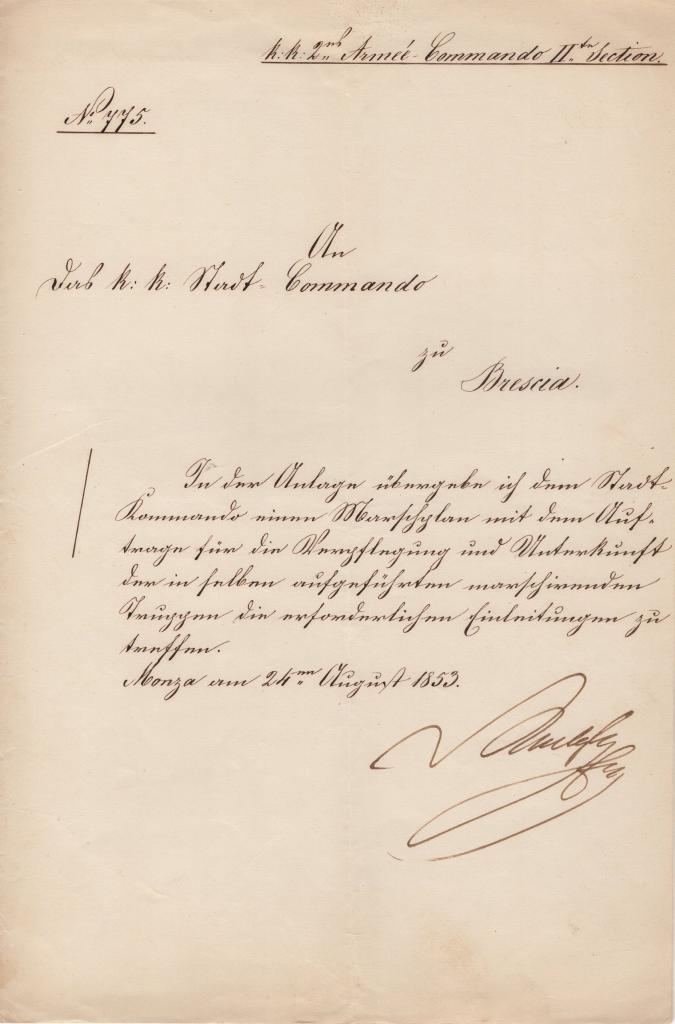 k: k: 2tes Armeé-Commando IIte Section.
No 775.
An
Das k: k: Stadt-Commando
zu
Brescia.
In der Anlage übergebe ich dem Stadt-
Kommando einen Marschplan mit dem Auf-
trage für die Verpflegung und Unterkunft
der in selben aufgeführten marschirenden
Truppen die erforderlichen Einleitungen zu
treffen.
Monza am 24ten August 1853.